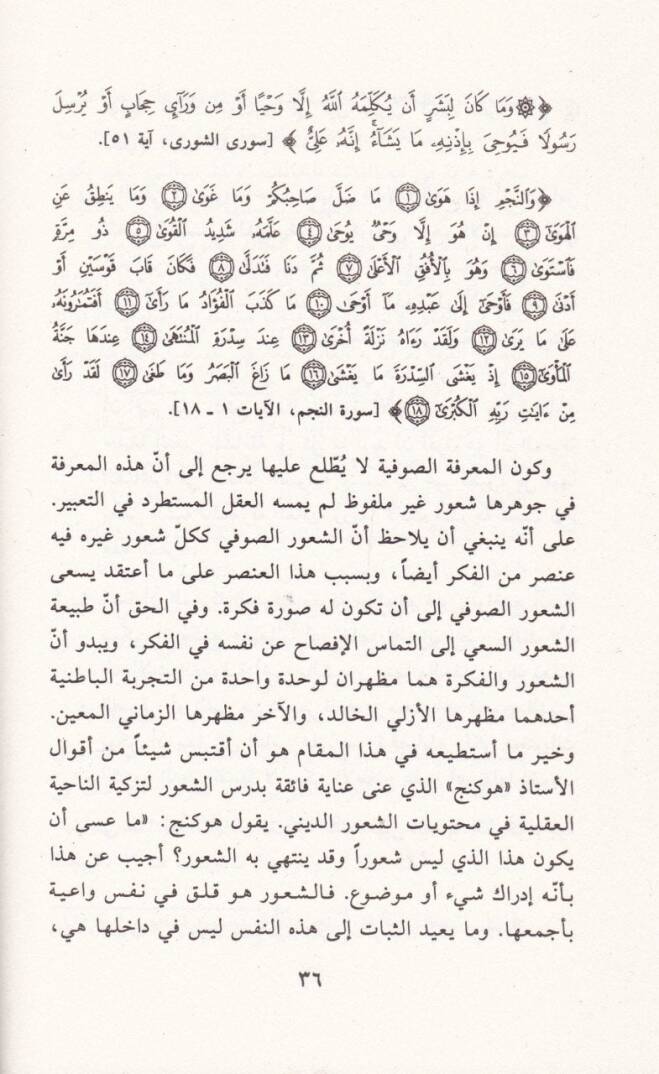 ﴿۞ وَمَا كَانَ لِبَشَرٍ أَن يُكَلِّمَهُ اللَّهُ إِلَّا وَحْيًا أَوْ مِن وَرَآيِ حِجَابٍ أَوْ يُرْسِلَ
رَسُولًا فَيُوحِيَ بِإِذْنِهِۦ مَا يَشَآءُ ۚ إِنَّهُۥ عَلِيٌّ﴾ [سورى الشورى، آية ٥١].
﴿وَالنَّجْمِ إِذَا هَوَىٰ ١ مَا ضَلَّ صَاحِبُكُمْ وَمَا غَوَىٰ ٢ وَمَا يَنطِقُ عَنِ
الْهَوَىٰٓ ٣ إِنْ هُوَ إِلَّا وَحْيٌ يُوحَىٰ ٤ عَلَّمَهُۥ شَدِيدُ الْقُوَىٰ ٥ ذُو مِرَّةٍ
فَاسْتَوَىٰ ٦ وَهُوَ بِالْأُفُقِ الْأَعْلَىٰ ٧ ثُمَّ دَنَا فَتَدَلَّىٰ ٨ فَكَانَ قَابَ قَوْسَيْنِ أَوْ
أَدْنَىٰ ٩ فَأَوْحَىٰٓ إِلَىٰ عَبْدِهِۦ مَآ أَوْحَىٰ ١٠ مَا كَذَبَ الْفُؤَادُ مَا رَأَىٰٓ ١١ أَفَتُمَٰرُونَهُۥ
عَلَىٰ مَا يَرَىٰ ١٢ وَلَقَدْ رَءَاهُ نَزْلَةً أُخْرَىٰ ١٣ عِندَ سِدْرَةِ الْمُنتَهَىٰ ١٤ عِندَهَا جَنَّةُ
الْمَأْوَىٰٓ ١٥ إِذْ يَغْشَى السِّدْرَةَ مَا يَغْشَىٰ ١٦ مَا زَاغَ الْبَصَرُ وَمَا طَغَىٰ ١٧ لَقَدْ رَأَىٰ
مِنْ ءَايَٰتِ رَبِّهِ الْكُبْرَىٰٓ ١٨﴾ [سورة النجم، الآيات ١ ـ ١٨].
وكون المعرفة الصوفية لا يُطّلع عليها يرجع إلى أنّ هذه المعرفة
في جوهرها شعور غير ملفوظ لم يمسه العقل المستطرد في التعبير.
على أنّه ينبغي أن يلاحظ أنّ الشعور الصوفي ككلّ شعور غيره فيه
عنصر من الفكر أيضاً، وبسبب هذا العنصر على ما أعتقد يسعى
الشعور الصوفي إلى أن تكون له صورة فكرة. وفي الحق أنّ طبيعة
الشعور السعي إلى التماس الإفصاح عن نفسه في الفكر، ويبدو أنّ
الشعور والفكرة هما مظهران لوحدة واحدة من التجربة الباطنية
أحدهما مظهرها الأزلي الخالد، والآخر مظهرها الزماني المعين.
وخير ما أستطيعه في هذا المقام هو أن أقتبس شيئاً من أقوال
الأستاذ «هوكنج» الذي عنى عناية فائقة بدرس الشعور لتزكية الناحية
العقلية في محتويات الشعور الديني. يقول هوكنج: «ما عسى أن
يكون هذا الذي ليس شعوراً وقد ينتهي به الشعور؟ أجيب عن هذا
بأنّه إدراك شيء أو موضوع. فالشعور هو قلق في نفس واعية
بأجمعها. وما يعيد الثبات إلى هذه النفس ليس في داخلها هي،
٣٦